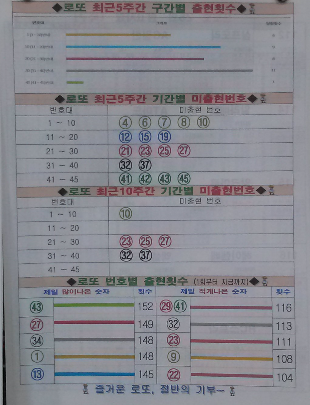 ◆로또 최근5주간 구간별 출현횟수◆
◆로또 최근5주간 기간별 미출현번호◆
번호대 미출현 번호
1 ~ 10 ④ ⑥ ⑦ ⑧ ⑩
11 ~ 20 ⑫ ⑮ ⑲
21 ~ 30 ㉑ ㉓ ㉕ ㉗
31 ~ 40 ㉜ ㊲
41 ~ 45 ㊶ ㊷ ㊸ ㊺
◆로또 최근10주간 기간별 미출현번호◆
번호대 미출현 번호
1 ~ 10 ⑩
11 ~ 20
21 ~ 30 ㉓ ㉕ ㉗
31 ~ 40 ㉜ ㊲
41 ~ 45
◆로또 번호별 출현횟수 (1회부터 지금까지)◆
제일 많이나온 숫자 횟수 제일 적게나온 숫자 횟수
㊸ 152 ㉙ ㊶ 116
㉗ 149 ㉜ 113
㉞ 148 ㉓ 111
① 148 ⑨ 108
⑬ 145 ㉒ 104
즐거운 로또, 절반의 기부~